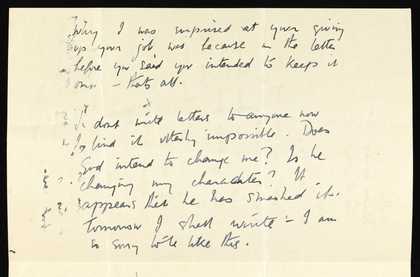 Why I was surprised at your giving
up your job was because in the letter
before you said you intended to keep it
on — thats all.
I dont write letters to anyone now
I find it utterly impossible. Does
God intend to change me? Is he
changing my character? It
appears that he has smashed it.
tomorrow I shall write — I am
so sorry to be like this.